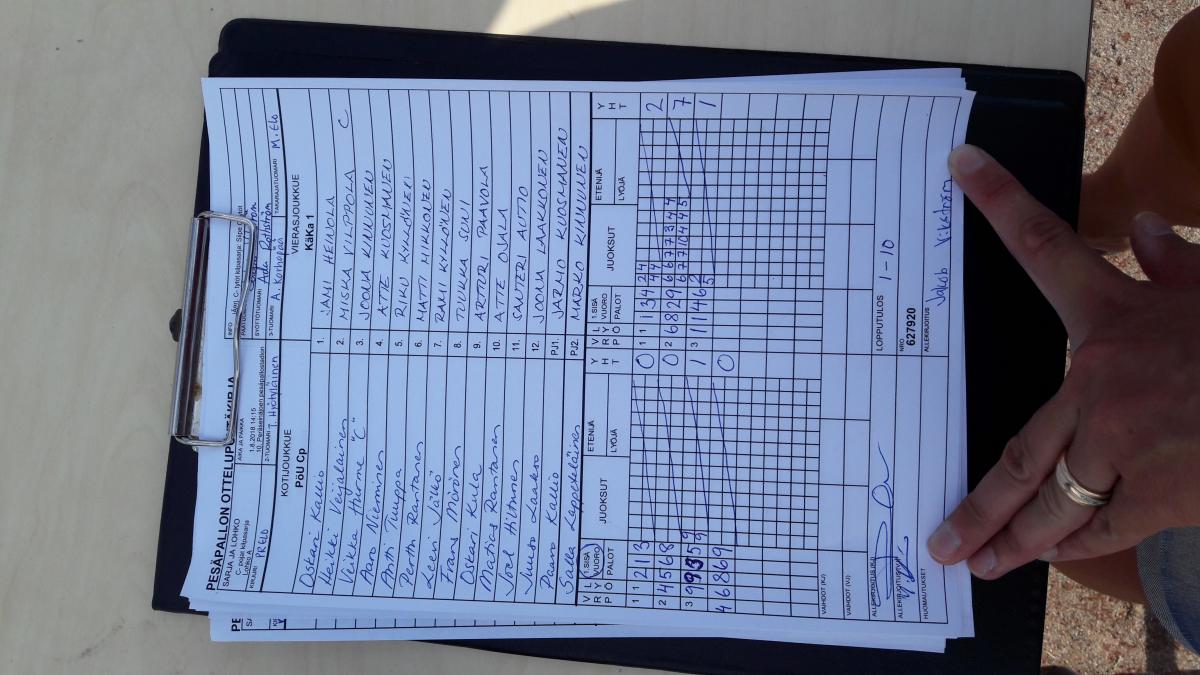 PESÄPALLON OTTELUPÖYTÄKIRJA
SARJA JA LOHKO
C- pojat kilpasarja
AIKA JA PAIKKA
1.8.2018 14:15
10. Peräseinäjoen pesäpallostadion
INFO
SYÖTTÖTUOMARI Ada Rottström
2-TUOMARI T. Hyötyläinen
3-TUOMARI A. Korhopää
TAKARAJATUOMARI M. Elo
KIRJURI PRELO
KOTIJOUKKUE
PöU Cp
VIERASJOUKKUE
KäKa 1
Oskari Kallio 1. JANI HEINOLA
Heikki Veijalainen 2. MISKA VILPPOLA C
Veikka Hurme "C" 3. JOONA KINNUNEN
Aaro Nieminen 4. ATTE KUOSMANEN
Antti Tuuppa 5. RIKU KYLLÖNEN
Pertti Rantanen 6. MATTI MIKKONEN
Leevi Jälkö 7. RAMI KYLLÖNEN
Frans Mörönen 8. TUUKKA SUNI
Oskari Kula 9. ARTTURI PAAVOLA
Matias Rantanen 10. ATTE OJALA
Joel Hiltunen 11. SANTERI AUTIO
Juuso Laakso 12. JOONA LAAKKONEN
Paavo Kallio PJ1. JARMO KUOSMANEN
Salla Lappeteläinen PJ2. MARKO KINNUNEN
V R L P Ö 1.SISÄ VUORO PALOT JUOKSUT ETENIJÄ LYÖJÄ Y H T V R L Y P Ö 1.SISÄ VUORO PALOT JUOKSUT ETENIJÄ LYÖJÄ Y H T
1 1 2 1 3 0 1 1 1 3 4 2 4 4 4 2
2 4 5 6 8 0 2 6 8 2 9 6 6 7 7 3 4 4 7
3 9 9 5 5 9 1 3 1 1 1 4 6 2 5 1
4 6 8 6 9 0
VAIHDOT (KJ)
VAIHDOT (VJ)
LOPPUTULOS 1-10
ALLEKIRJOITUS (KJ)
NRO
627920
ALLEKIRJOITUS
ALLEKIRJOITUS Jakob Vikström
HUOMAUTUKSET